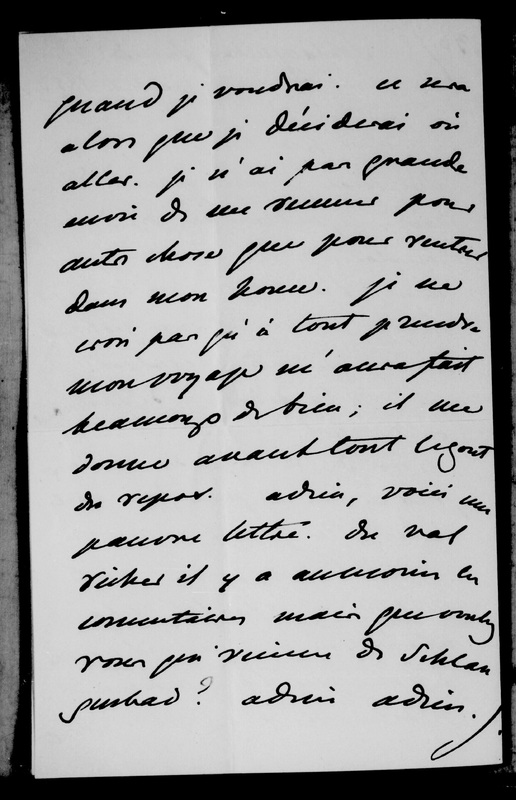 quand je voudrai. ce sera
alors que je déciderai où
aller. je n'ai pas grande
envie de me remuer pour
autre chose que pour rentrer
dans mon home. je ne
crois pas qu'à tout prendre
mon voyage m'aura fait
beaucoup de bien; il me
donne avant tout le gout
du repos. adieu, voici une
pauvre lettre. du val
richer il y a au moins les
comentaires mais que voulez
vous qui vienne de Schlan
genbad? adieu adieu.